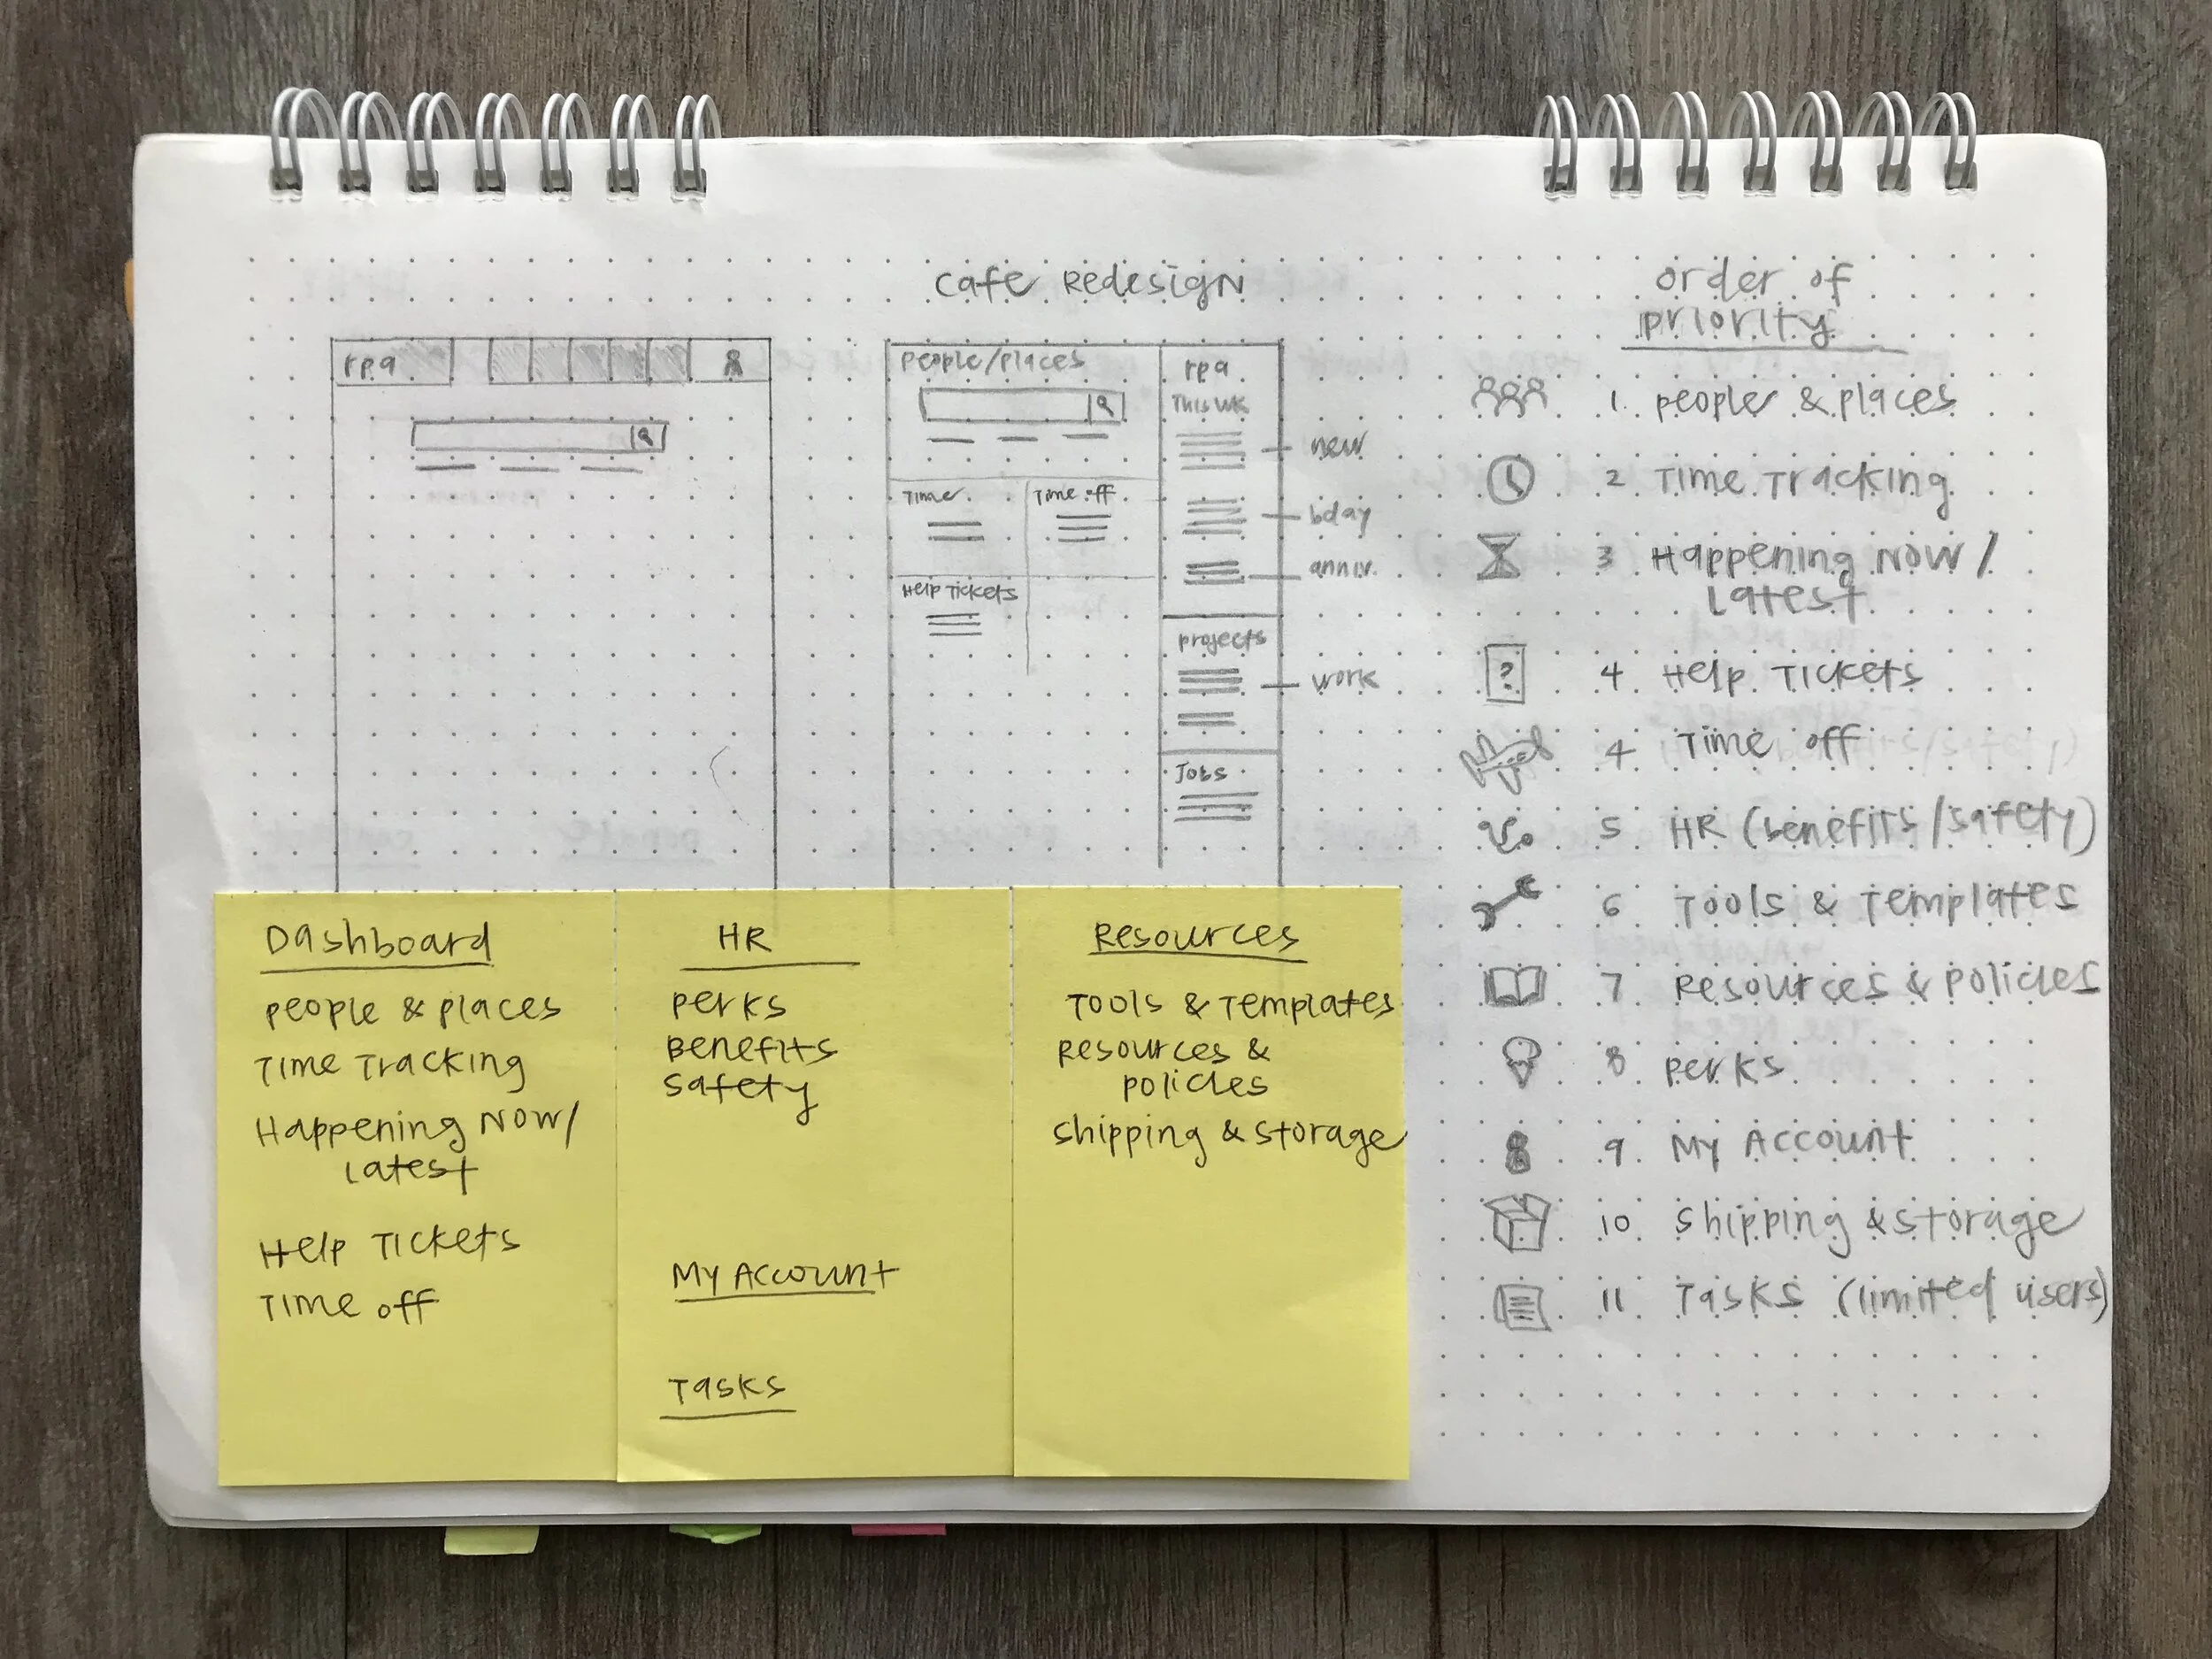 Cafe Redesign
rpa
People/Places
Time
Time off
Help Tickets
rpa
This wk
new
bday
anniv.
projects
work
Jobs
order of
priority
1. People & places
2 Time Tracking
3 Happening Now/
Latest
4. Help Tickets
4 Time off
5 HR (benefits/safety)
6 Tools & Templates
7 Resources & policies
8 perks
9. My Account
10 shipping & storage
11 Tasks (limited users)
Dashboard
People & places
Time Tracking
Happening Now/
Latest
Help Tickets
Time off
HR
Perks
Benefits
Safety
My Account
Tasks
Resources
Tools & Templates
Resources &
policies
shipping & storage